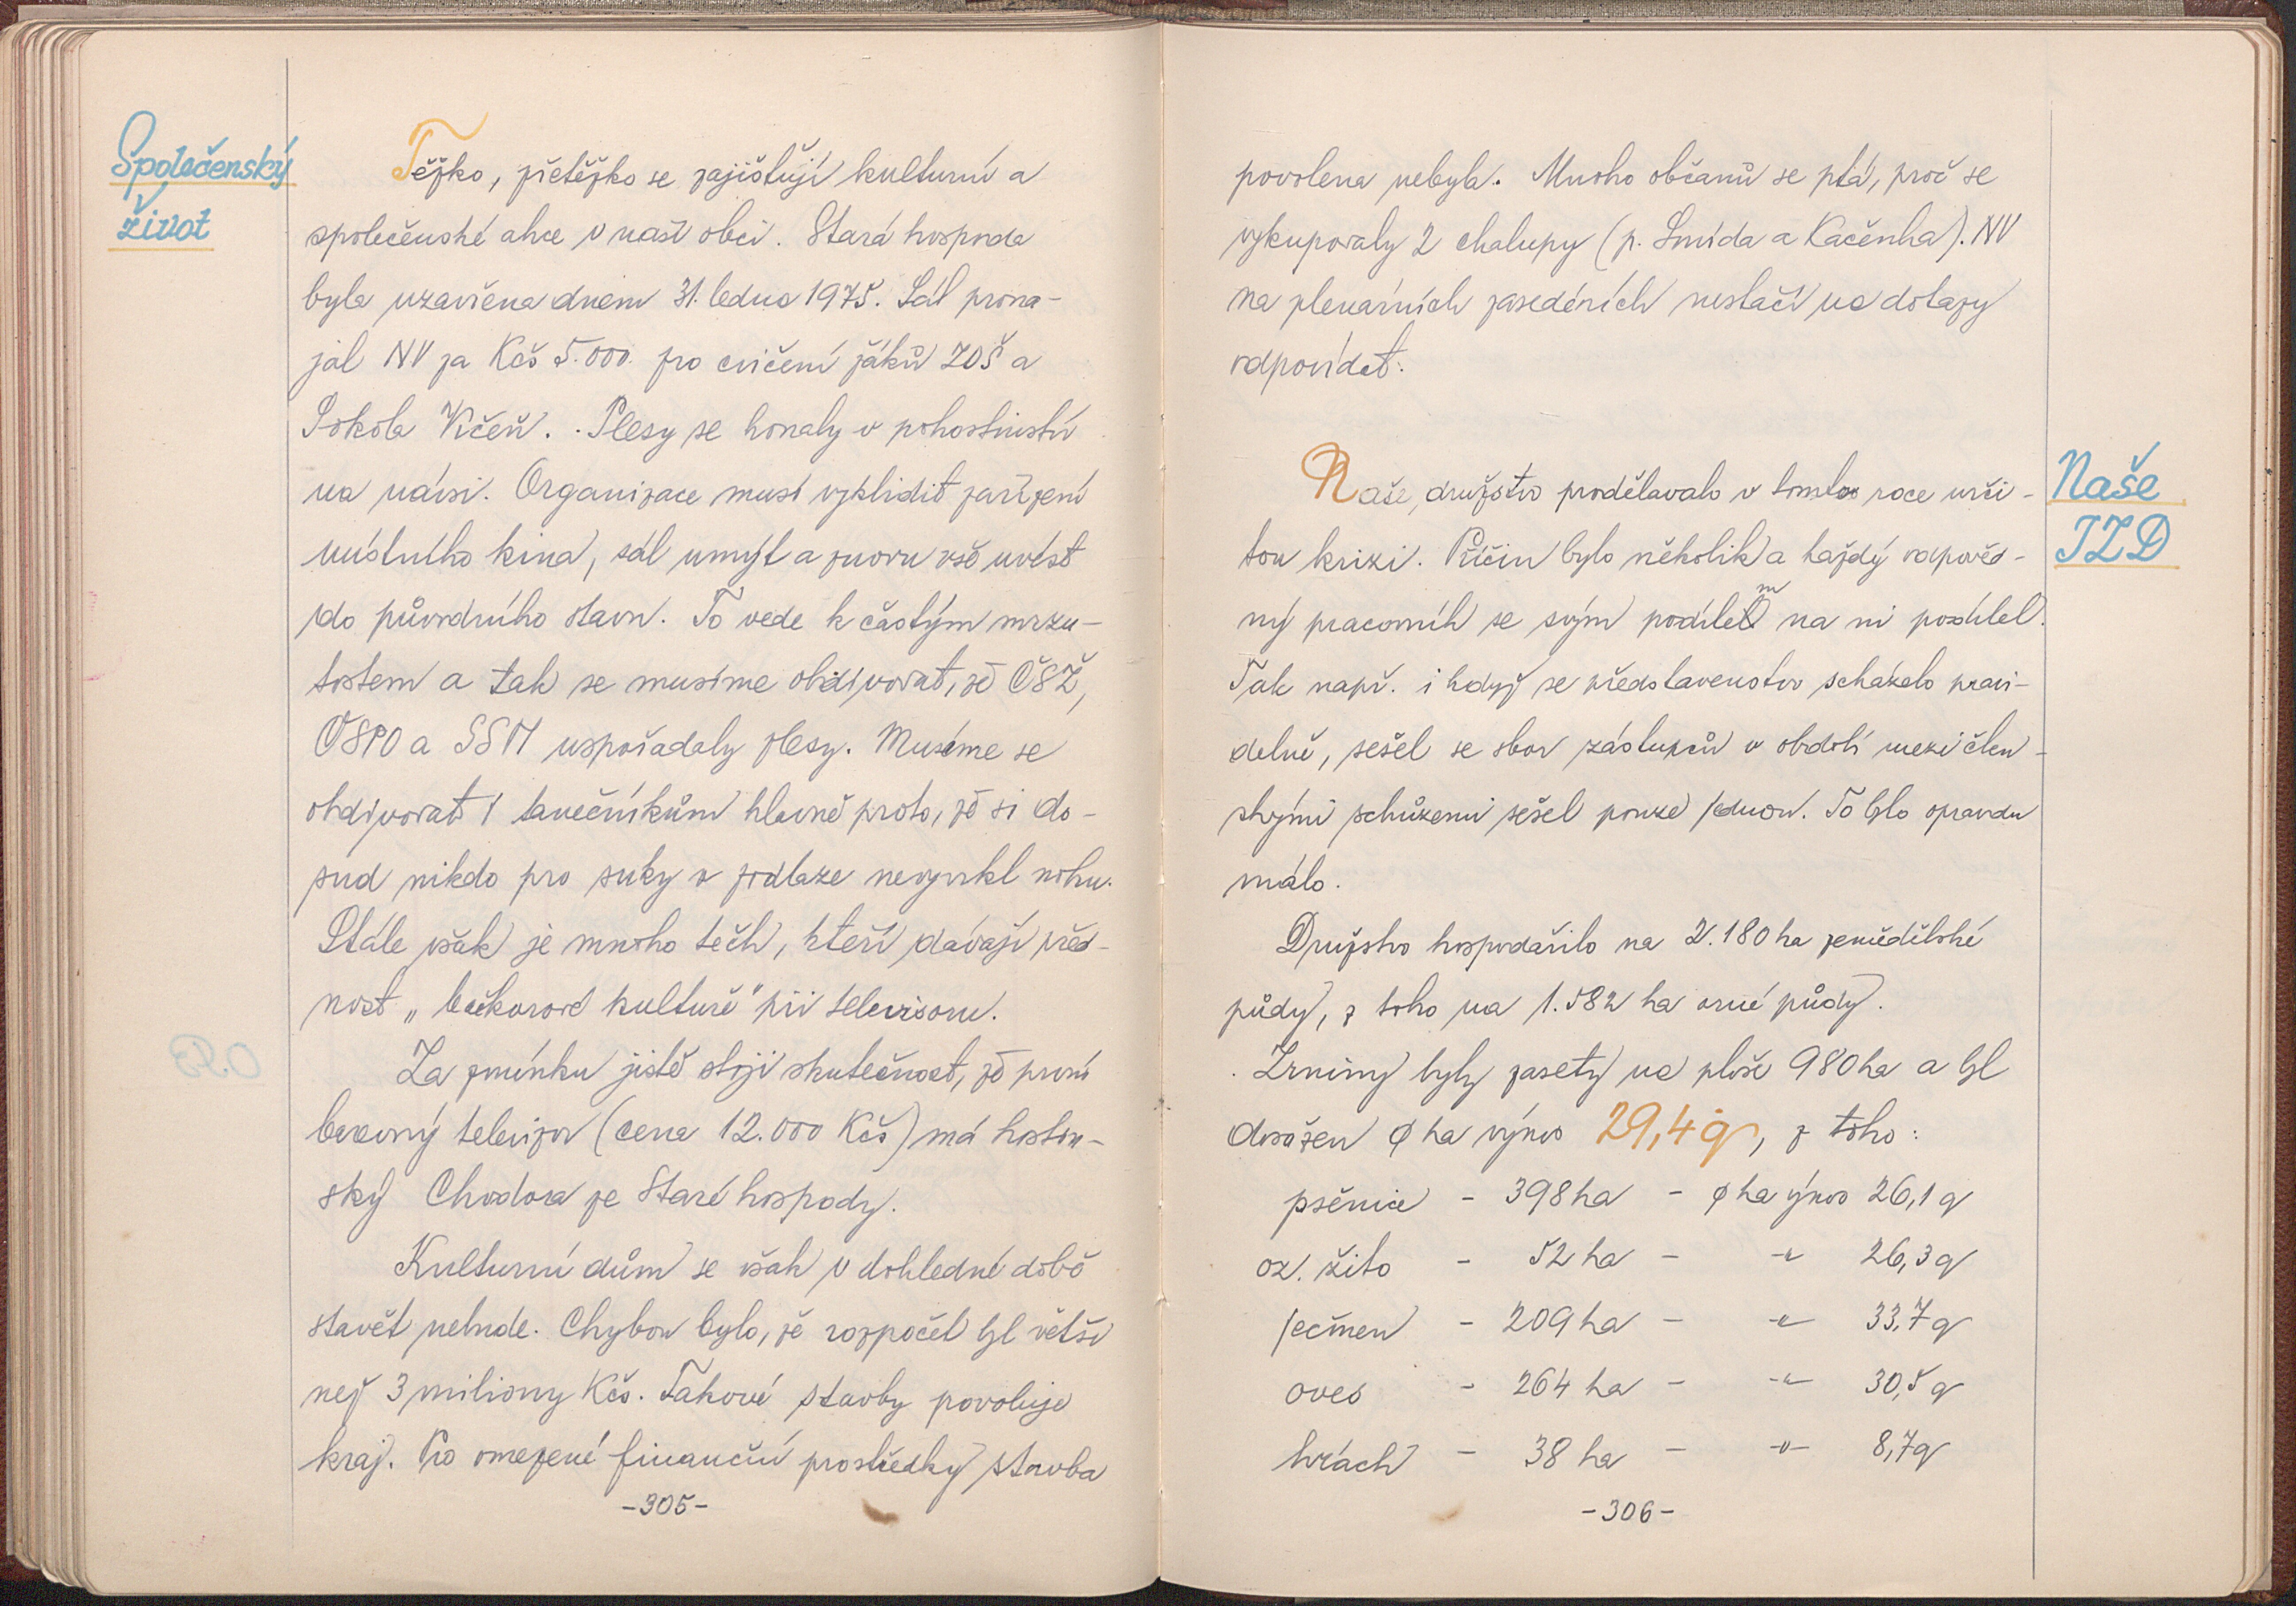 Společenský
život
Těžko, přetěžko se zajišťují kulturní a
společenské akce v naší obci. Stará hospoda
byla uzavřena dnem 31. ledna 1975. Sál prona-
jal NV za Kčs 5.000. pro cvičení žáků ZDŠ a
Sokola Křčeň. Plesy se konaly v pohostinství
na návsi. Organizace musí vyklidit zařízení
místního kina, sál umýt a znovu vše uvést
do původního stavu. To vede k častým mrzu-
tostem a tak se musíme obdivovat, že ČSŽ,
ČSPO a SSM uspořádaly plesy. Musíme se
obdivovat i tanečníkům hlavně proto, že si do-
sud nikdo pro suky v podlaze nevyvrkl nohu.
Stále však je mnoho těch, kteří dávají před-
nost „bačkorové kultuře" při televisoru.
Za zmínku jistě stojí skutečnost, že první
barevný televizor (cena 12.000 Kčs) má hostin-
ský Chodora ze Staré hospody.
Kulturní dům se však v dohledné době
stavět nebude. Chybou bylo, že rozpočet byl větší
než 3 miliony Kčs. Takové stavby povoluje
kraj. Pro omezené finanční prostředky stavba
-305-
povolena nebyla. Mnoho občanů se ptá, proč se
vykupovaly 2 chalupy (p. Šmída a Kačenka). NV
na plenárních zasedáních nestačí na dotazy
odpovídat.
Naše
JZD
Naše družstvo prodělávalo v tomto roce urči-
tou krizi. Příčin bylo několik a každý odpověd-
ný pracovník se svým podílem na ni podílel.
Tak např. i když se představenstvo scházelo pravi-
delně, sešel se sbor zástupců v období mezi člen-
skými schůzemi sešel pouze jednou. To bylo opravdu
málo.
Družstvo hospodařilo na 2.180 ha zemědělské
půdy, z toho na 1.582 ha orné půdy.
Zrniny byly zasety na ploše 980 ha a byl
dosažen ø ha výnos 29,4 q, z toho:
pšenice - 398 ha - ø ha výnos 26,1 q
oz. žito - 52 ha - -"- 26,3 q
ječmen - 209 ha - -"- 33,7 q
oves - 264 ha - -"- 30,5 q
hrách - 38 ha - -"- 8,7 q
-306-